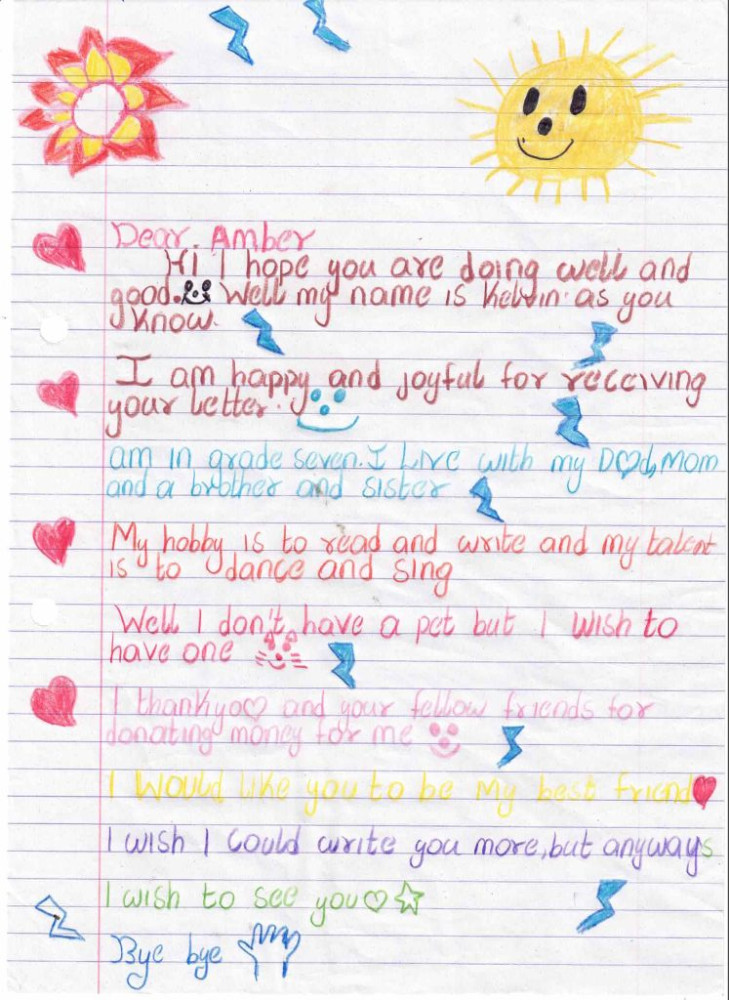 Dear. Amber
Hi I hope you are doing well and
good. Well my name is Kelvin as you
know.
I am happy and joyful for receiving
your letter.
am in grade seven. I Live with my D♡d, Mom
and a brother and sister
My hobby is to read and write and my talent
is to dance and sing
Well I don't have a pet but I wish to
have one
I thankyo♡ and your fellow friends for
donating money for me
I would like you to be My best friend
I wish I could write you more, but anyways
I wish to see you♡☆
Bye bye